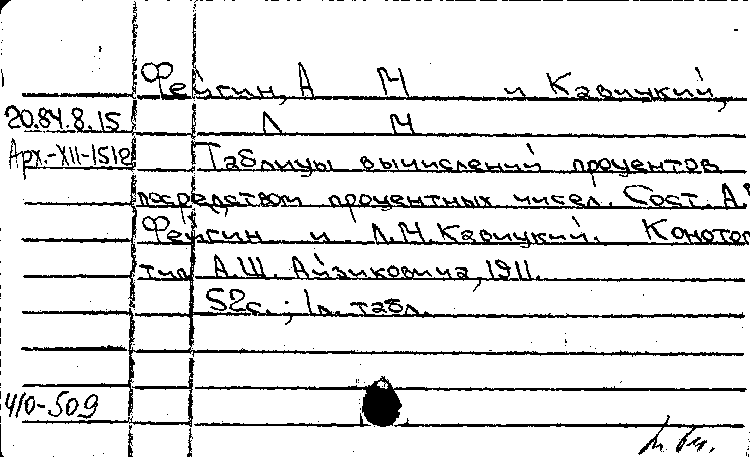 Фейгин, А М и Кавицкий,
20.84.8.15 Л М
Арх.-XII-1512 Таблицы вычислений процентов
посредством процентных чисел. Сост. А.
Фейгин и Л.М. Кавицкий. Конотоп
тип А.Ш. Айзиковича, 1911.
52с.; 1л. табл.
4/0-509